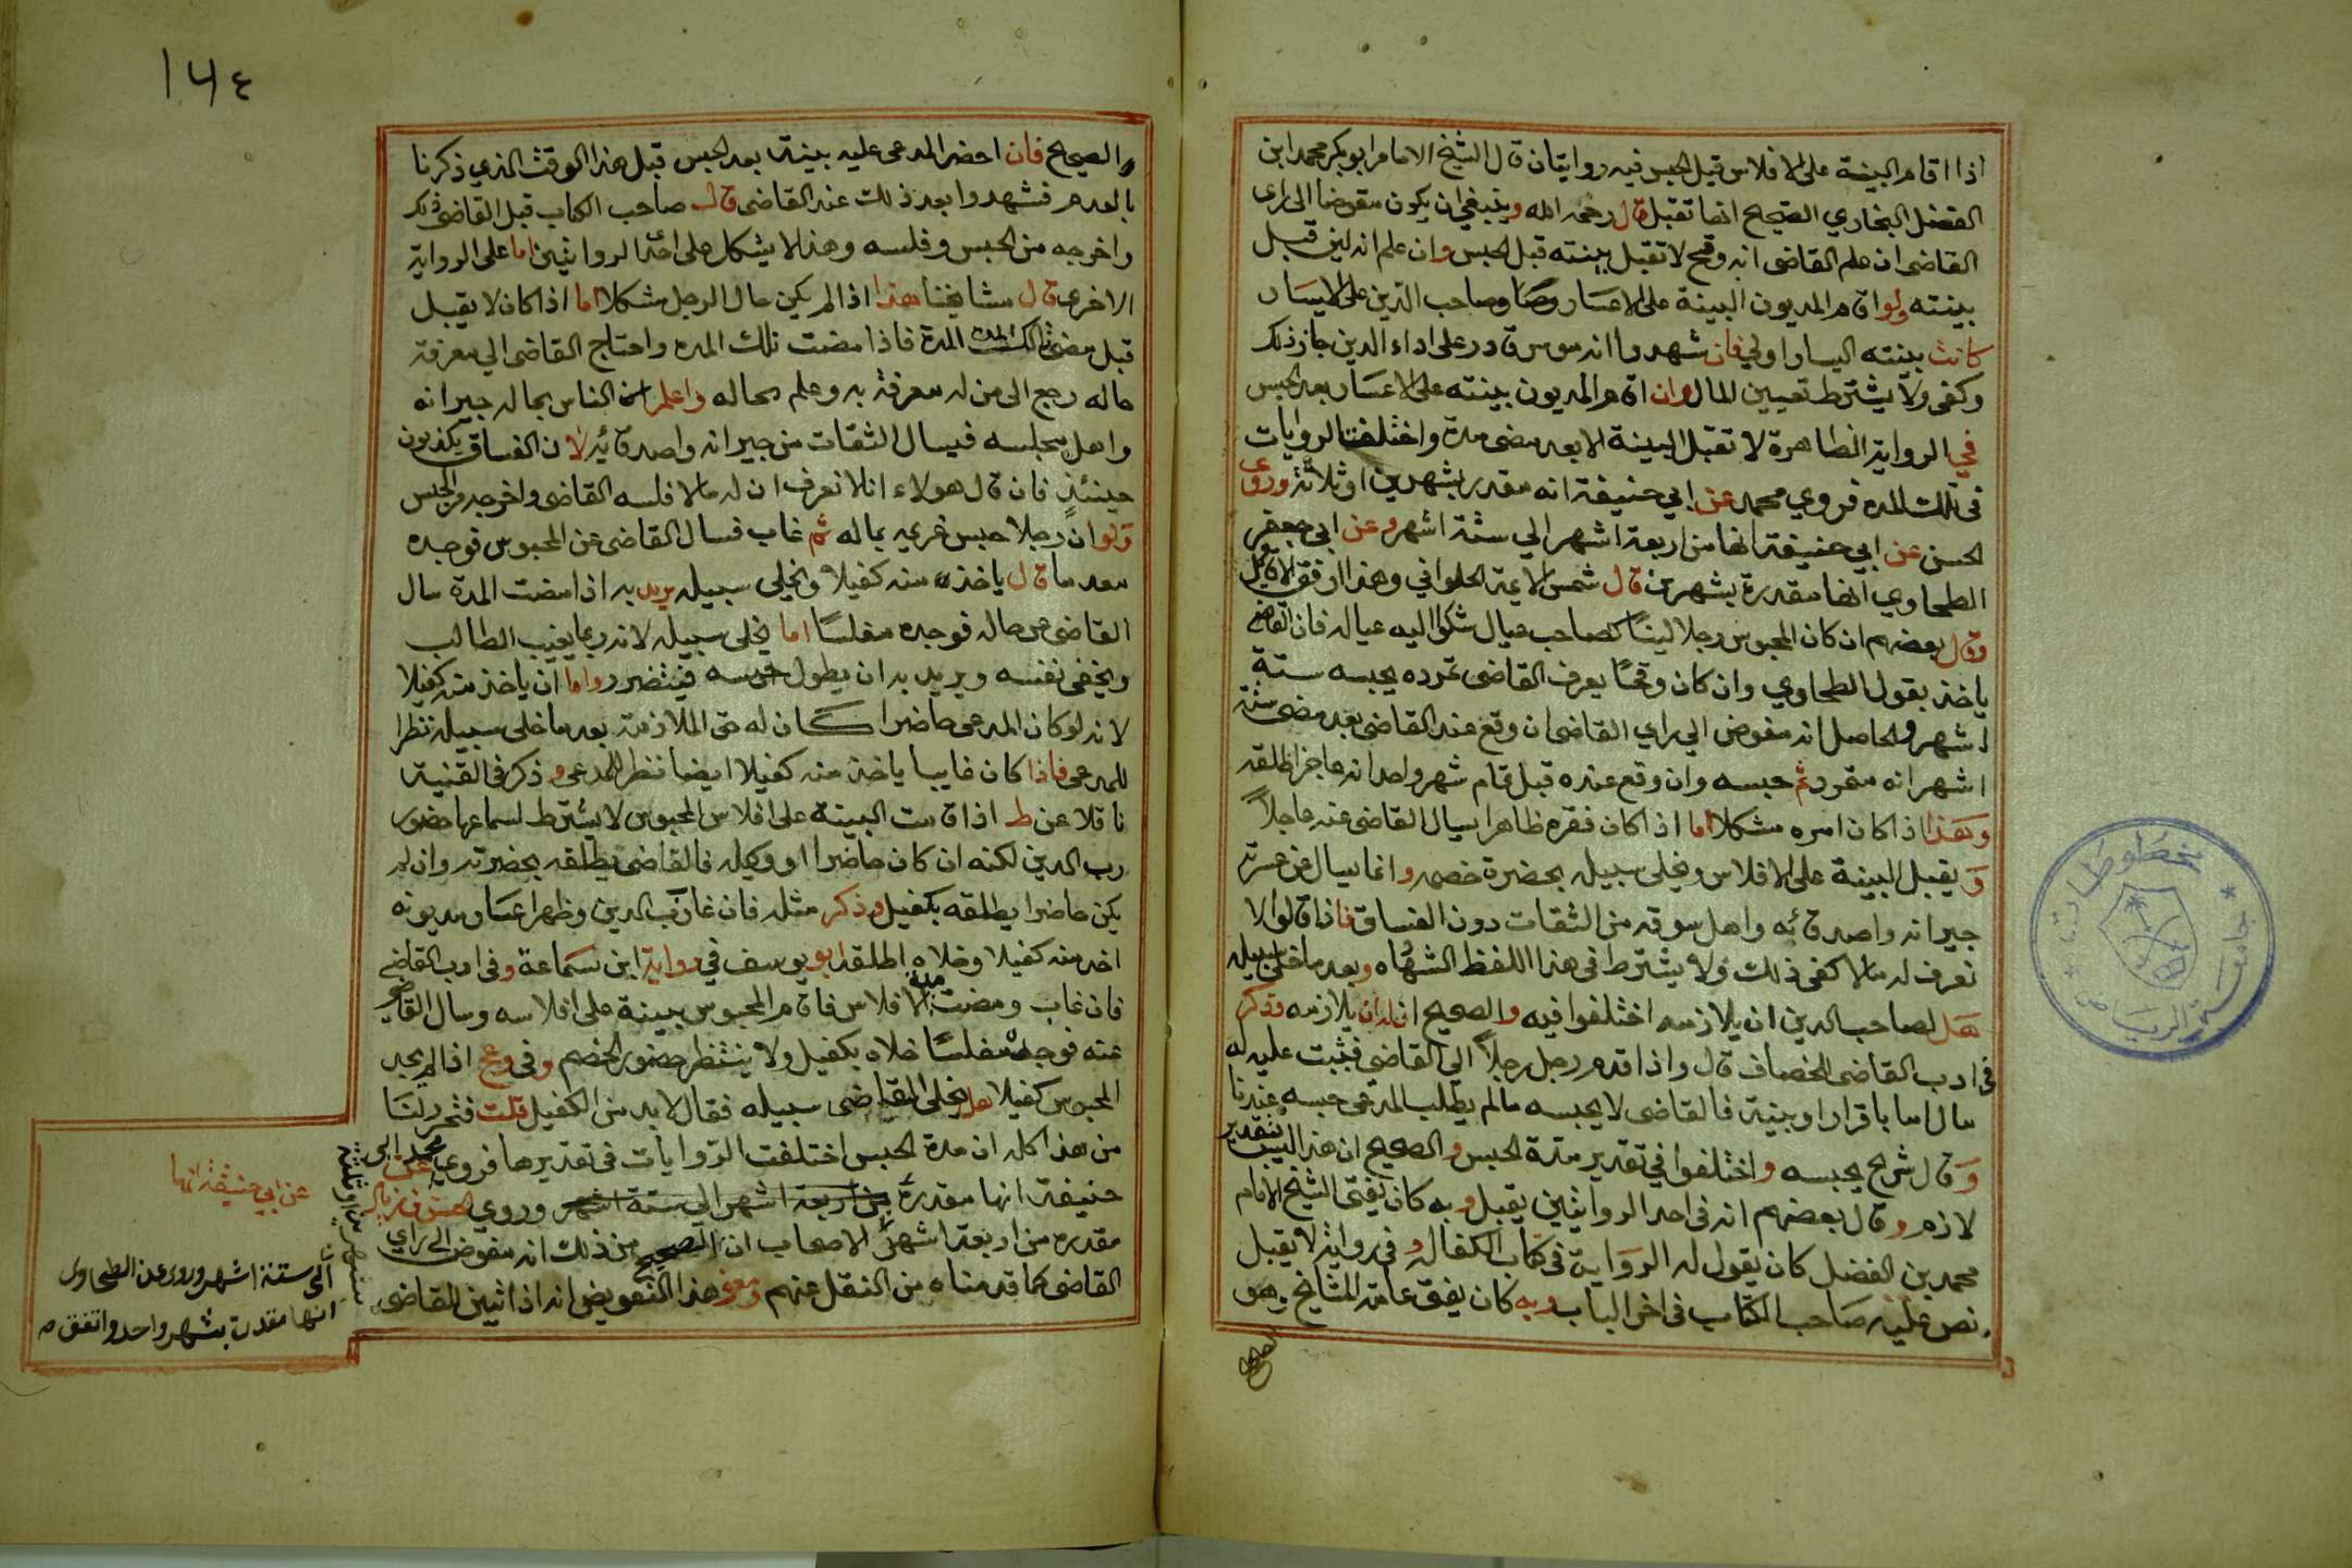 اذا اقام البينة على الافلاس قبل الحبس فيه روايتان قال الشيخ الامام ابو بكر محمد ابن
الفضل البخاري الصحيح انها تقبل قال رحمه الله وينبغي ان يكون مفوضا الى راى
القاضى ان علم القاضى انه وقح لا تقبل بينته قبل الحبس وان علم انه لين قبل
بينته ولو اقام المديون البينة على الاعسار وصاحب الدين على الايسار
كانت بينته اليسار اولى فان شهدوا انه موسر قادر على اداء الدين جاز ذلك
وكفى ولا يشترط تعيين المال وان اقام المديون بينته على الاعسار بعد الحبس
في الرواية الظاهرة لا تقبل البينة الا بعد مضى مدة واختلفت الروايات
فى تلك المده فروي محمد عن ابي حنيفة انه مقدر بشهرين او ثلاثة وروى
الحسن عن ابي حنيفة انها من اربعة اشهر الي ستة اشهر وعن ابى جعفر
الطحاوي انها مقدرة بشهر قال شمس الايمة الحلواني وهذا ارفق الاقاويل
وقال بعضهم ان كان المحبوس رجلا لينا صاحب عيال شكوا اليه عياله فان القاضى
ياخذ بقول الطحاوي وان كان وقحا يعرف القاضى تمرده يحبسه ستة
اشهر والحاصل انه مفوض الي راي القاضى ان وقع عند القاضى بعد مضى ستة
اشهر انه متمرد ثم حبسه وان وقع عنده قبل تمام شهر واحد انه عاجز اطلقه
وهذا اذا كان امره مشكلا اما اذا كان فقره ظاهرا يسال القاضى عنه عاجلا
و يقبل البينة على الافلاس ويخلى سبيله بحضرة خصمه وانما يسال عن عسرته
جيرانه واصدقائه واهل سوقه من الثقات دون الفساق فاذا قالوا لا
نعرف له مالا كفى ذلك ولا يشترط فى هذا اللفظ الشهاده وبعد ما خلى سبيله
هل لصاحب الدين ان يلازمه اختلفوا فيه والصحيح ان له ان يلازمه وذكر
فى ادب القاضى للخصاف قال واذا قدم رجل رجلا الي القاضى فثبت عليه له
مال اما باقرار او بينة فالقاضى لا يحبسه ما لم يطلب المدعى حبسه عندنا
وقال شريح يحبسه واختلفوا في تقدير مدة الحبس والصحيح ان هذا ليس بتقدير
لازم وقال بعضهم انه فى احد الروايتين يقبل وبه كان يفتى الشيخ الامام
محمد بن الفضل كان يقول له الرواية فى كتاب الكفالة وفى رواية لا يقبل
نص عليه صاحب الكتاب فى اخر الباب وبه كان يفتى عامة المشايخ وهو
١٦٤
والصحيح فان احضر المدعى عليه بينة بعد الحبس قبل هذا الوقت الذي ذكرنا
بالعدم فشهدوا بعد ذلك عند القاضى قال صاحب الكتاب قبل القاضى ذلك
واخرجه من الحبس وفلسه وهذا لا يشكل على احد الروايتين اما على الرواية
الاخرى قال مشايخنا هذا اذا لم يكن حال الرجل مشكلا اما اذا كان لا يقبل
قبل مضى تلك المدة فاذا مضت تلك المده واحتاج القاضى الي معرفة
حاله رجع الى من له معرفة به وعلم بحاله واعلم الناس بحاله جيرانه
واهل مجلسه فيسال الثقات من جيرانه واصدقائه لان الفساق يكذبون
حينئذ فان قال هولاء انا لا نعرف ان له مالا فلسه القاضى واخرجه من الحبس
ولو ان رجلا حبس غريمه بماله ثم غاب فسال القاضى عن المحبوس فوجده
معدما قال ياخذ منه كفيلا ويخلى سبيله يريد به اذا مضت المدة سال
القاضى عن حاله فوجده مفلسا اما يخلى سبيله لانه ربما يغيب الطالب
ويخفى نفسه ويريد به ان يطول حبسه فيتضرر واما ان ياخذ منه كفيلا
لانه لو كان المدعى حاضرا كان له حق الملازمة بعد ما خلى سبيله نظرا
للمدعى فاذا كان غايبا ياخذ منه كفيلا ايضا نظرا للمدعى وذكر فى القنية
ناقلا عن ط اذا قامت البينة على افلاس المحبوس لا يشترط لسماعها حضور
رب الدين لكنه ان كان حاضرا او وكيله فالقاضى يطلقه بحضرته وان لم
يكن حاضرا يطلقه بكفيل وذكر مثله فان غاب رب الدين وظهر اعسار مديونه
اخذ منه كفيلا وخلاه اطلقه ابو يوسف في رواية ابن سماعة وفى ادب القاضى
فان غاب ومضت مدة الافلاس فاقام المحبوس بينة على افلاسه وسال القاضى
عنه فوجده مفلسا خلاه بكفيل ولا ينتظر حضور الخصم وفى اذا لم يجد
المحبوس كفيلا هل يخلى القاضى سبيله فقال لا بد من الكفيل قلت فتحرر لنا
من هذا كله ان مدة الحبس اختلفت الروايات فى تقديرها فروي محمد عن ابى
حنيفة انها مقدرة من اربعة اشهر الي ستة اشهر وروي الحسن بن زياد
مقدره من اربعة اشهر الاصحاب ان الصحيح من ذلك انه مفوض الى راي
القاضى كما قدمناه من النقل عنهم ومعنى هذا التفويض انه اذا تبين للقاضى
عن ابي حنيفة انها
الى ستة اشهر وروى عن الطحاوى
انها مقدرة بشهر واحد واتفق
مخطوطات
جامعة الرياض